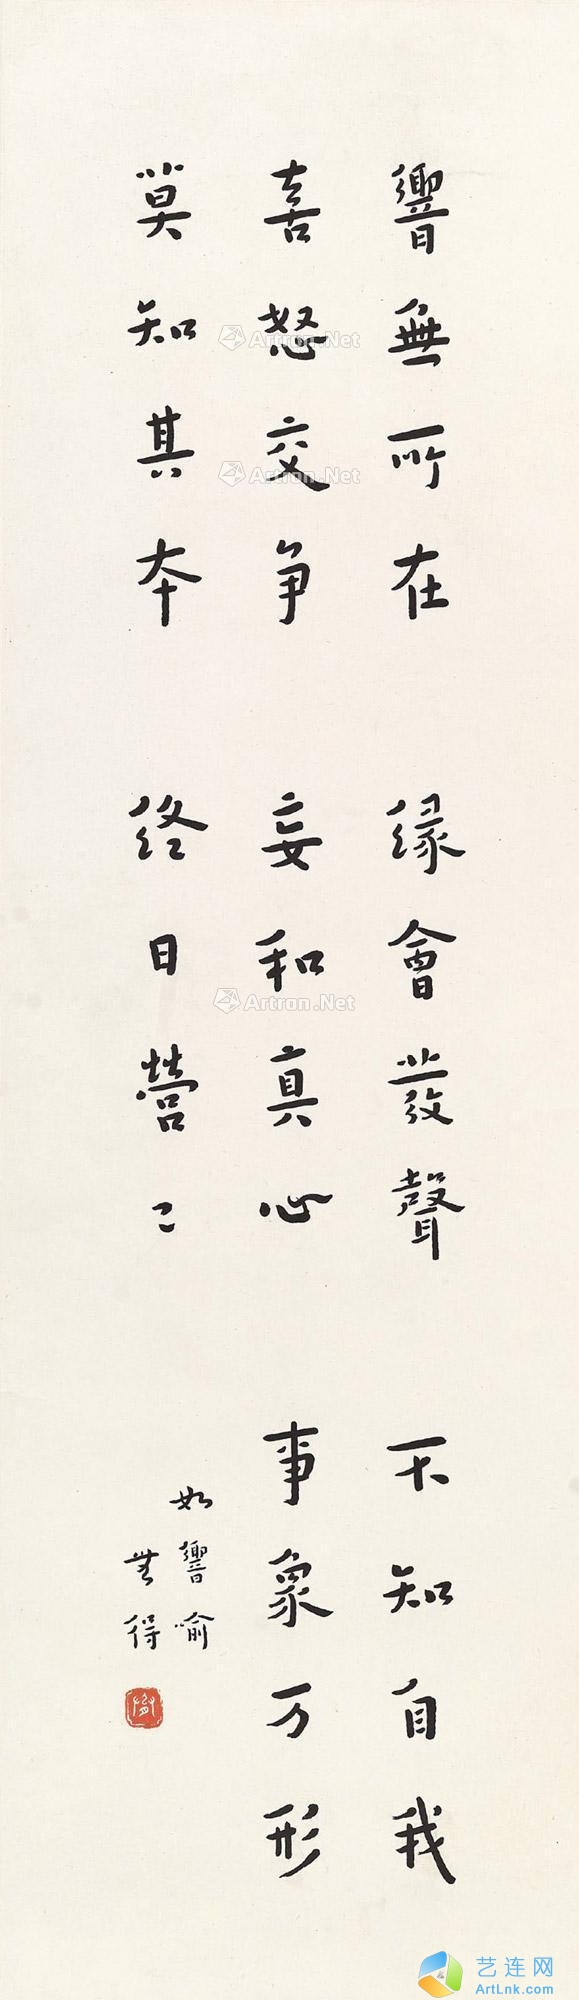 響無所在 緣會發聲 不知自我
喜怒交争 妄和真心 事象万形
莫知其本 终日營〻
如響喻
無得
Artron.Net
Artron.Net
Artron.Net
艺连网
ArtLnk.com